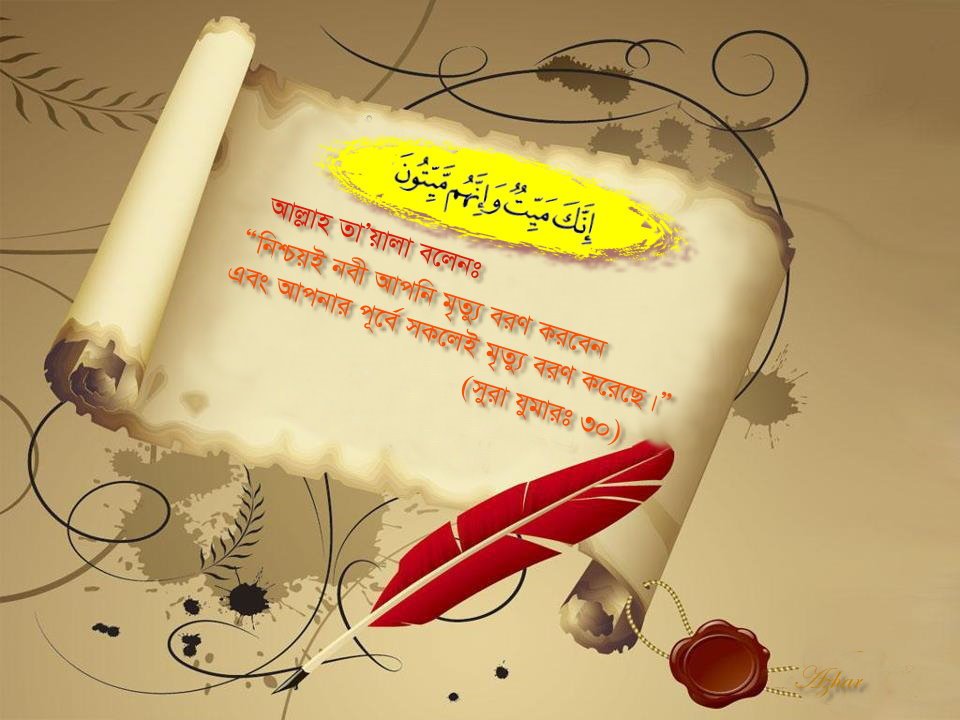 إِنَّكَ مَيِّتٌ وَإِنَّهُم مَّيِّتُونَ
আল্লাহ তা’য়ালা বলেনঃ
“নিশ্চয়ই নবী আপনি মৃত্যু বরণ করবেন
এবং আপনার পূর্বে সকলেই মৃত্যু বরণ করেছে।”
(সুরা যুমারঃ ৩০)
Azhar